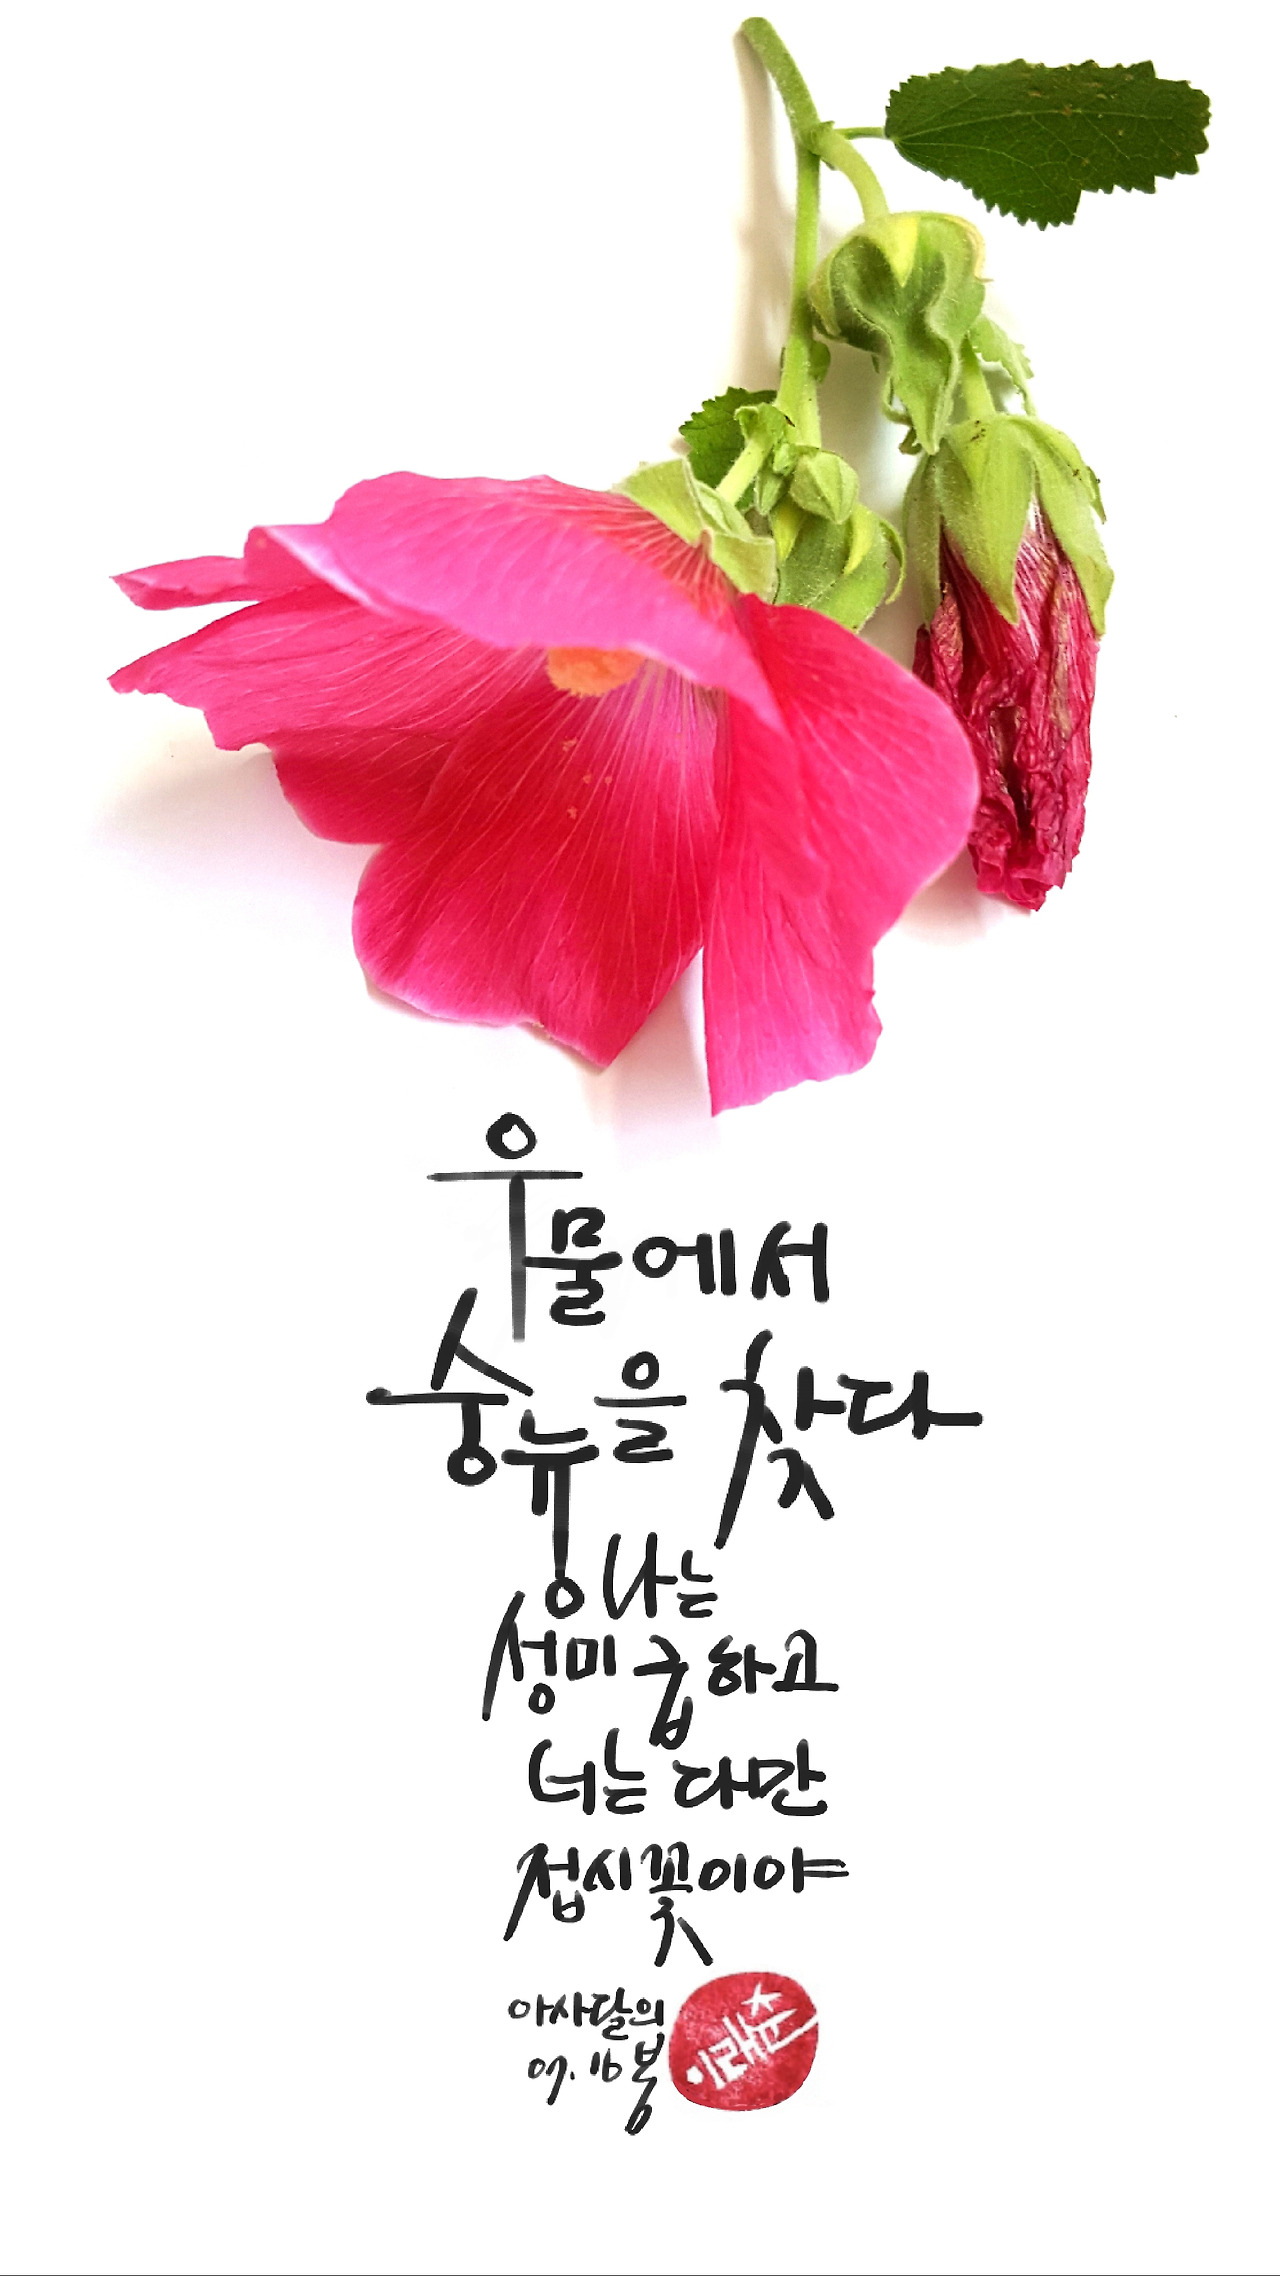 우물에서
숭늉을 찾다
나는
성미 급하고
너는 다만
접시꽃이야
아사달의
07.16 봄
이래춘